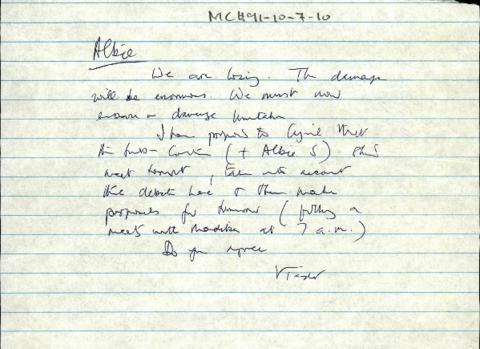 MCH91-10-7-10
Albie
We are losing. The damage
will be enormous. We must now
ensure damage limitation
I have proposed to Cyril that
the Sub-Comm (+ Albie S) still
meet tonight, take into account
the debate here & then make
proposals for tomorrow (following a
meeting with Madiba at 7 a.m.)
Do you agree